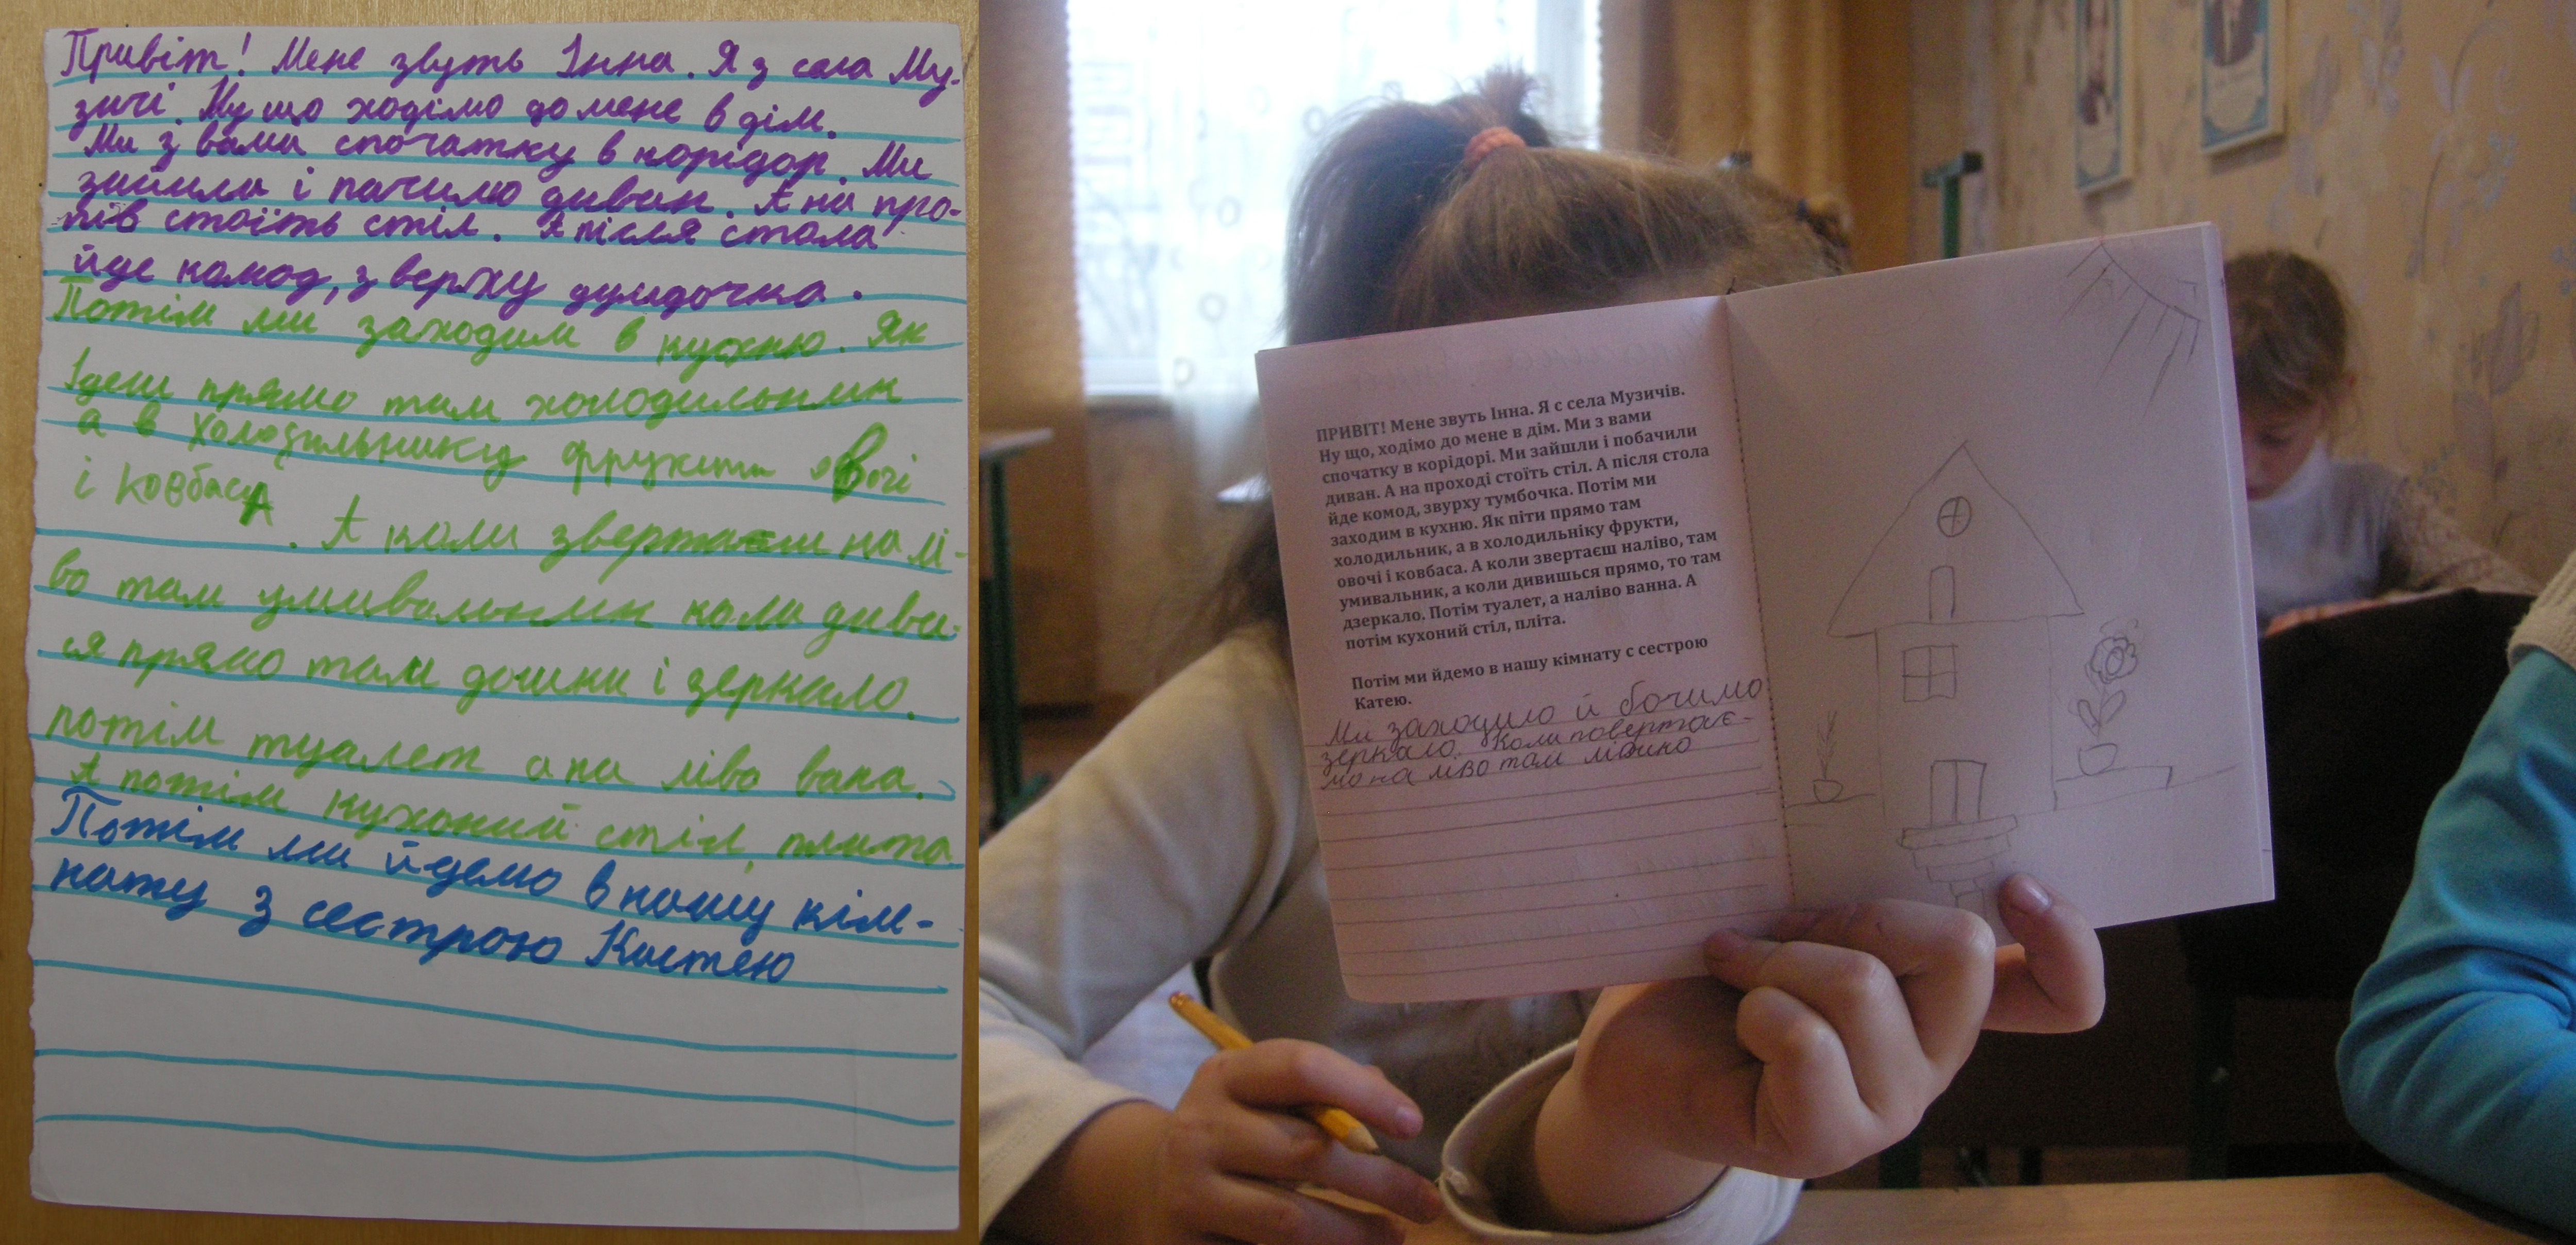 Привіт! Мене звуть Інна. Я з села Му-
зичі. Ну що ходімо до мене в дім.
Ми з вами спочатку в корідор. Ми
зайшли і бачимо диван. А на про-
тів стоїть стіл. А після стола
йде комод, з верху думдочка.
Потім ми заходим в кухню. Як
Ідеш прямо там холодильник
а в холодильнику фрукти овочі
і ковбасА
. А коли звертаєш на лі-
во там умивальник коли диви-
ся прямо там дошки і зеркало.
потім туалет а на ліво вана.
А потім кухоний стіл, плита
Потім ми йдемо в нашу кім-
нату з сестрою Кастею
ПРИВІТ! Мене звуть Інна. Я с села Музичів.
Ну що, ходімо до мене в дім. Ми з вами
спочатку в корідорі. Ми зайшли і побачили
диван. А на проході стоїть стіл. А після стола
йде комод, звурху тумбочка. Потім ми
заходим в кухню. Як піти прямо там
холодильник, а в холодильніку фрукти,
овочі і ковбаса. А коли звертаєш наліво, там
умивальник, а коли дивишься прямо, то там
дзеркало. Потім туалет, а наліво ванна. А
потім кухоний стіл, пліта.
Потім ми йдемо в нашу кімнату с сестрою
Катею.
Ми заходимо й бочимо
зеркало. Коли повертає-
мо на ліво там ліжко